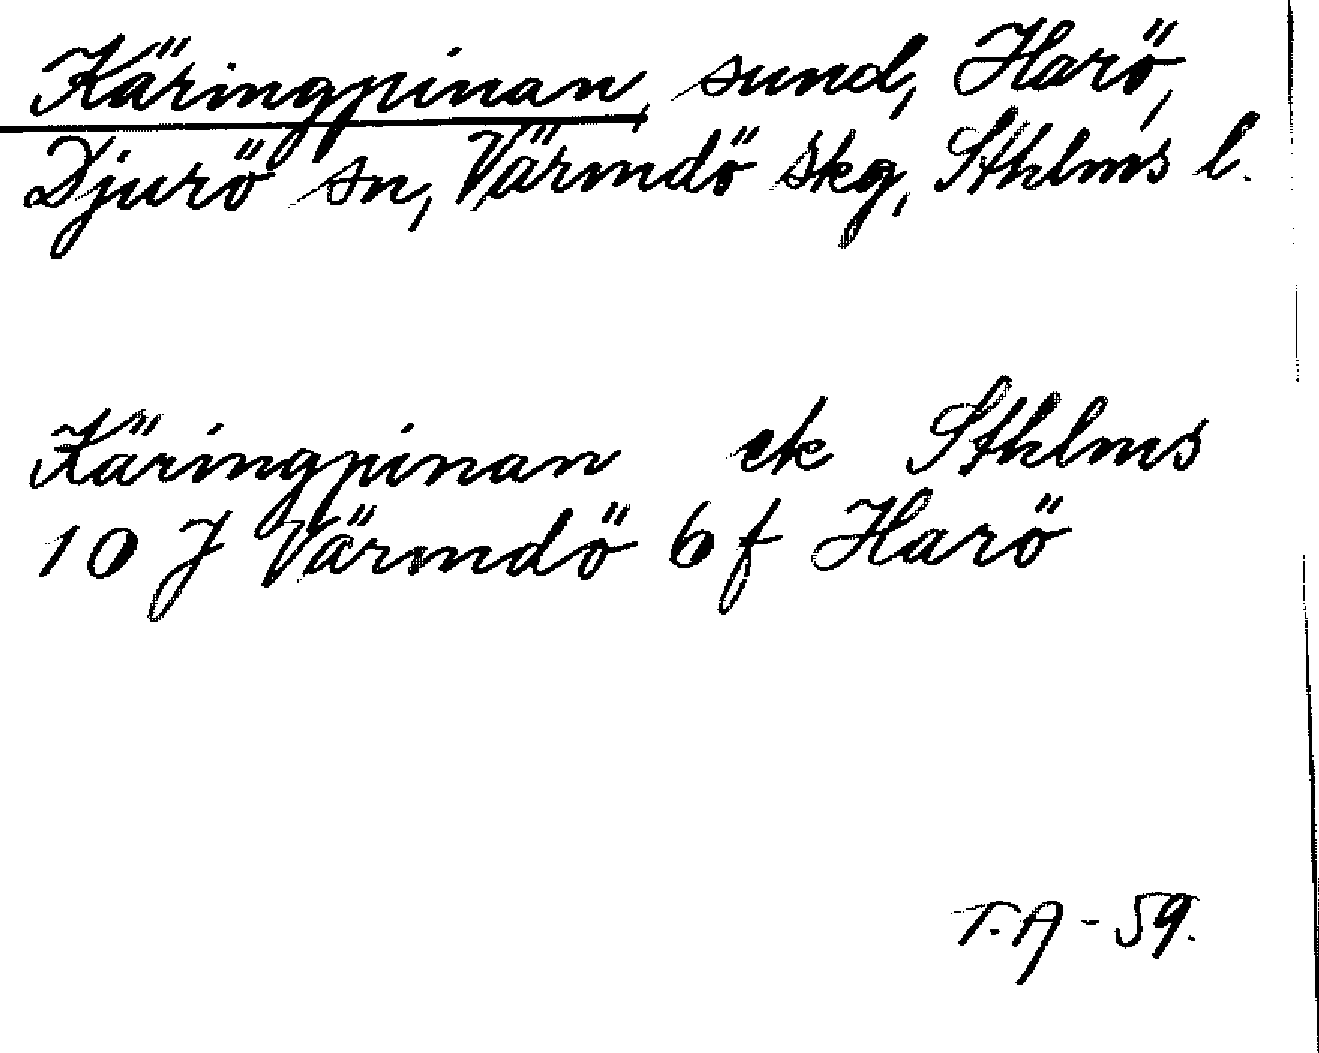 Käringpinan, sund, Harö,
Djurö sn, Värmdö skg, Sthlms l.
Käringpinan ek Sthlms
10 J Värmdö 6 f Harö
T.A - 59.